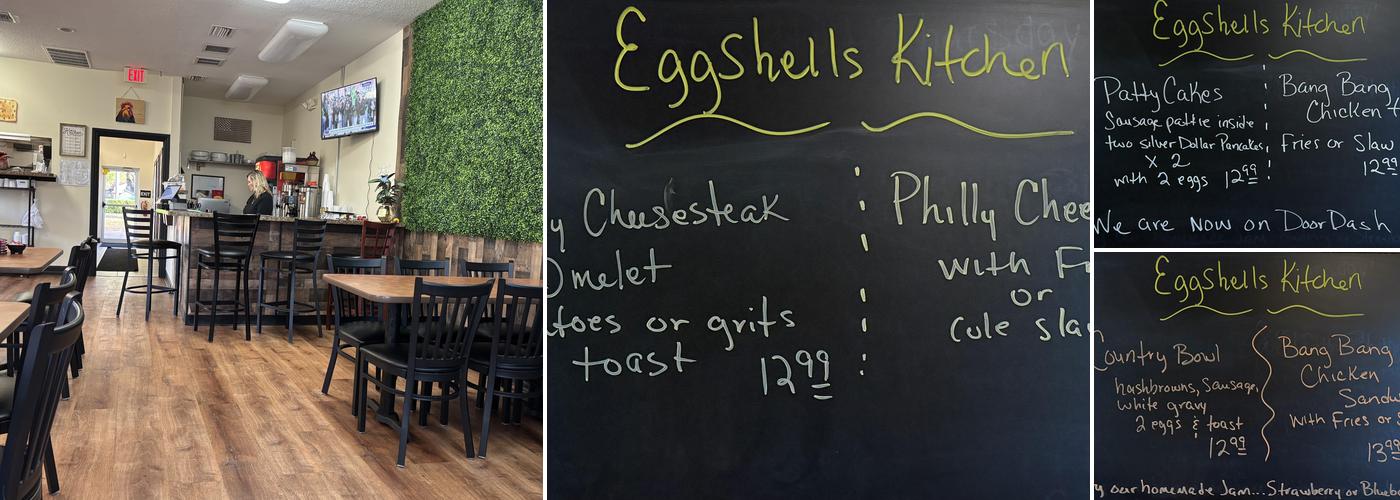 EXIT
Eggshells Kitchen
y Cheesesteak
Omelet
atoes or grits
toast 12.99
Philly Chee
with Fr
or
cole sla
Eggshells Kitchen
Patty Cakes
Sausage pattie inside
two silver Dollar Pancakes,
X 2
with 2 eggs 12.99
Bang Bang
Chicken
Fries or Slaw
12.99
We are Now on DoorDash
Eggshells Kitchen
Country Bowl
hashbrowns, Sausage,
white gravy
2 eggs & toast
12.99
Bang Bang
Chicken
Sandw
with Fries or S
13.99
y our homemade Jam... Strawberry or Blueb